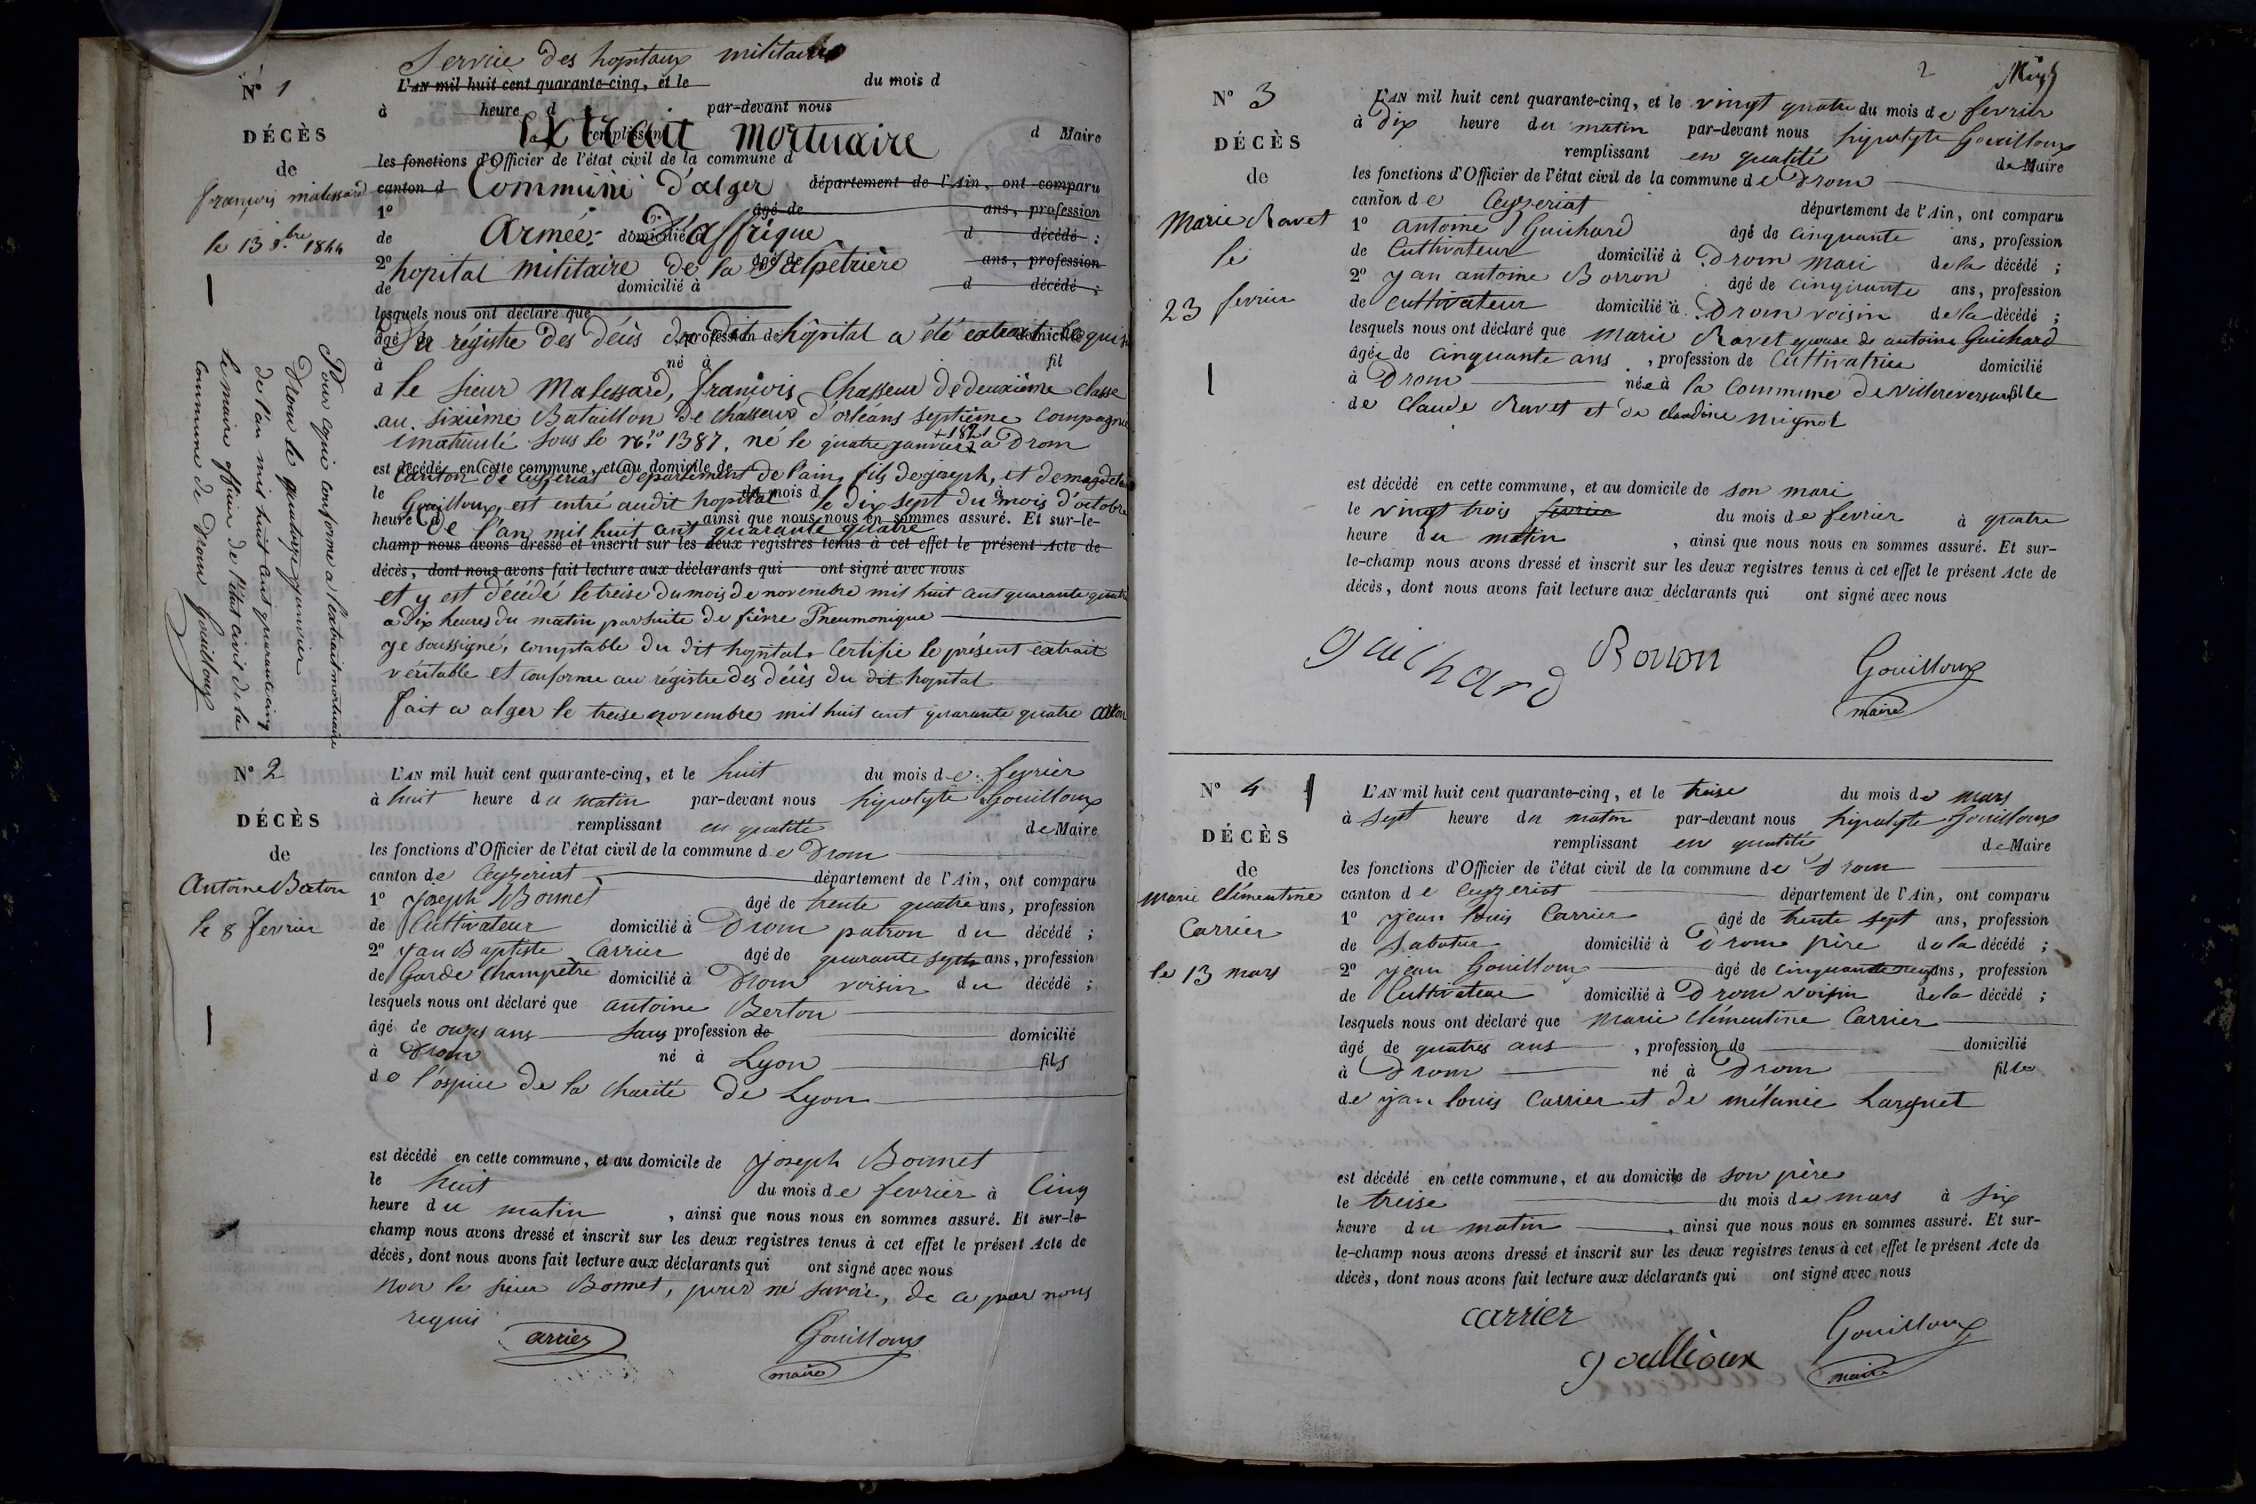 Service des hopitaux militaires
N° 1
L'AN mil huit cent quarante-cinq, et le du mois d
à heure d par-devant nous
Extrait mortuaire
remplissant d Maire
DÉCÈS
les fonctions d'Officier de l'état civil de la commune d
de
canton d Commune d'alger département de l'Ain, ont comparu
françois malessard
1° âgé de ans, profession
le 13 9.bre 1844
de Armée d'affrique domicilié à d décédé ;
2° hopital militaire de la Salpêtrière âgé de ans, profession
de domicilié à d décédé ;
lesquels nous ont déclaré que
Du régistre des décès du dit hôpital a été extrait ce qui suit
âgé de profession de domicilié
à né à fil
d le sieur Malessard, françois Chasseur de deuxième classe
au sixième Bataillon de chasseurs d'orléans septième Compagnie
imatriculé sous le n° 1387. né le quatre janvier 1821 a Drom
est décédé en cette commune, et au domicile de
Canton de Ceyzeriat département de l'ain, fils de joseph, et de magdelaine
le du mois d à
Gouilloux, est entré audit hopital le dix sept du mois d'octobre
heure d ainsi que nous nous en sommes assuré. Et sur-le-
de l'an mil huit cent quarante quatre
champ nous avons dressé et inscrit sur les deux registres tenus à cet effet le présent Acte de
décès, dont nous avons fait lecture aux déclarants qui ont signé avec nous
et y est décédé le treise du mois de novembre mil huit cent quarante quatre
a Dix heures du matin par suite de fièvre Pneumonique
je soussigné, comptable du dit hopital, Certifie le présent extrait
véritable et conforme au régistre des décès du dit hopital
fait a alger le treise novembre mil huit cent quarante quatre
Pour copie conforme a l'extrait mortuaire
Drom le quatorze janvier
de l'an mil huit cent quarante cinq
le maire officier de l'état civil de la
Commune de Drom Gouilloux
N° 2
L'AN mil huit cent quarante-cinq, et le huit du mois de fevrier
à huit heure du matin par-devant nous hipolyte Gouilloux
DÉCÈS
remplissant en qualité de Maire
de
les fonctions d'Officier de l'état civil de la commune de Drom
Antoine Berton
canton de Ceyzeriat département de l'Ain, ont comparu
1° joseph Bonnet âgé de trente quatre ans, profession
le 8 fevrier
de Cultivateur domicilié à Drom patron du décédé ;
2° jean Baptiste Carrier âgé de quarante sept ans, profession
de Garde Champetre domicilié à Drom voisin du décédé ;
lesquels nous ont déclaré que antoine Berton
âgé de onzes ans sans profession de domicilié
à Drom né à Lyon fils
de l'ospice de la Charité de Lyon
est décédé en cette commune, et au domicile de joseph Bonnet
le huit du mois de fevrier à Cinq
heure du matin , ainsi que nous nous en sommes assuré. Et sur-le-
champ nous avons dressé et inscrit sur les deux registres tenus à cet effet le présent Acte de
décès, dont nous avons fait lecture aux déclarants qui ont signé avec nous
non le sieur Bonnet, pour ne savoir, de ce par nous
requis
Carrier Gouilloux
maire
2
N° 3
L'AN mil huit cent quarante-cinq, et le vingt quatre du mois de fevrier
à Dix heure du matin par-devant nous hipolyte Gouilloux
DÉCÈS
remplissant en qualité de Maire
de
les fonctions d'Officier de l'état civil de la commune de Drom
canton de Ceyzeriat département de l'Ain, ont comparu
Marie Ravet
1° antoine Guichard âgé de Cinquante ans, profession
le
de Cultivateur domicilié à Drom mari de la décédé ;
2° jean antoine Borron âgé de Cinquante ans, profession
23 fevrier
de Cultivateur domicilié à Drom voisin de la décédé ;
lesquels nous ont déclaré que Marie Ravet epouse de antoine Guichard
âgée de Cinquante ans , profession de Cultivatrice domicilié
à Drom née à la Commune de Villereversure fille
de Claude Ravet et de claudine Mignot
est décédé en cette commune, et au domicile de son mari
le vingt trois fevrier du mois de fevrier à quatre
heure du matin , ainsi que nous nous en sommes assuré. Et sur-
le-champ nous avons dressé et inscrit sur les deux registres tenus à cet effet le présent Acte de
décès, dont nous avons fait lecture aux déclarants qui ont signé avec nous
guichard Borron Gouilloux
maire
N° 4
L'AN mil huit cent quarante-cinq, et le treise du mois de mars
à sept heure du matin par-devant nous hipolyte Gouilloux
DÉCÈS
remplissant en qualité de Maire
de
les fonctions d'Officier de l'état civil de la commune de Drom
Marie Clémentine
canton de Ceyzeriat département de l'Ain, ont comparu
Carrier
1° jean louis Carrier âgé de trente sept ans, profession
de Sabotier domicilié à Drom père de la décédé ;
le 13 mars
2° jean Gouilloux âgé de cinquante neuf ans, profession
de Cultivateur domicilié à Drom voisin de la décédé ;
lesquels nous ont déclaré que Marie Clémentine Carrier
âgé de quatres ans , profession de domicilié
à Drom né à Drom fille
de jean louis Carrier et de mélanie Larguet
est décédé en cette commune, et au domicile de son père
le treise du mois de mars à six
heure du matin , ainsi que nous nous en sommes assuré. Et sur-
le-champ nous avons dressé et inscrit sur les deux registres tenus à cet effet le présent Acte de
décès, dont nous avons fait lecture aux déclarants qui ont signé avec nous
carrier Gouilloux
goullioux maire